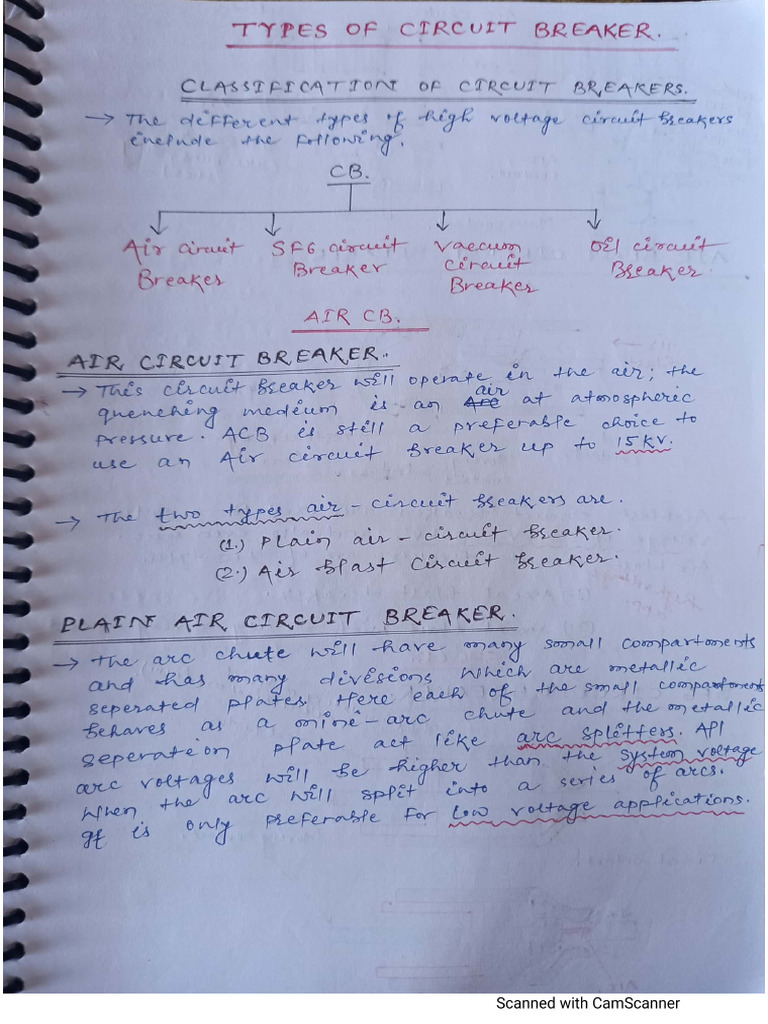 TYPES OF CIRCUIT BREAKER.
CLASSIFICATION OF CIRCUIT BREAKERS.
→ The different types of high voltage circuit breakers
include the following.
CB.
Air circuit SF6 circuit Vaecum Oil circuit
Breaker Breaker circuit Breaker
Breaker
AIR CB.
AIR CIRCUIT BREAKER.
→ This circuit breaker will operate in the air; the
quenching medium is an Arc air at atmospheric
pressure. ACB is still a preferable choice to
use an Air circuit breaker up to 15kv.
→ The two types air-circuit breakers are.
(1.) Plain air-circuit breaker.
(2.) Air blast circuit breaker.
PLAIN AIR CIRCUIT BREAKER.
→ The arc chute will have many small compartments
and has many divisions which are metallic
seperated plates. Here each of the small compartment
behaves as a mini-arc chute and the metallic
seperation plate act like arc splitters. All
arc voltages will be higher than the system voltage
when the arc will split into a series of arcs.
It is only preferable for low voltage applications.
Scanned with CamScanner